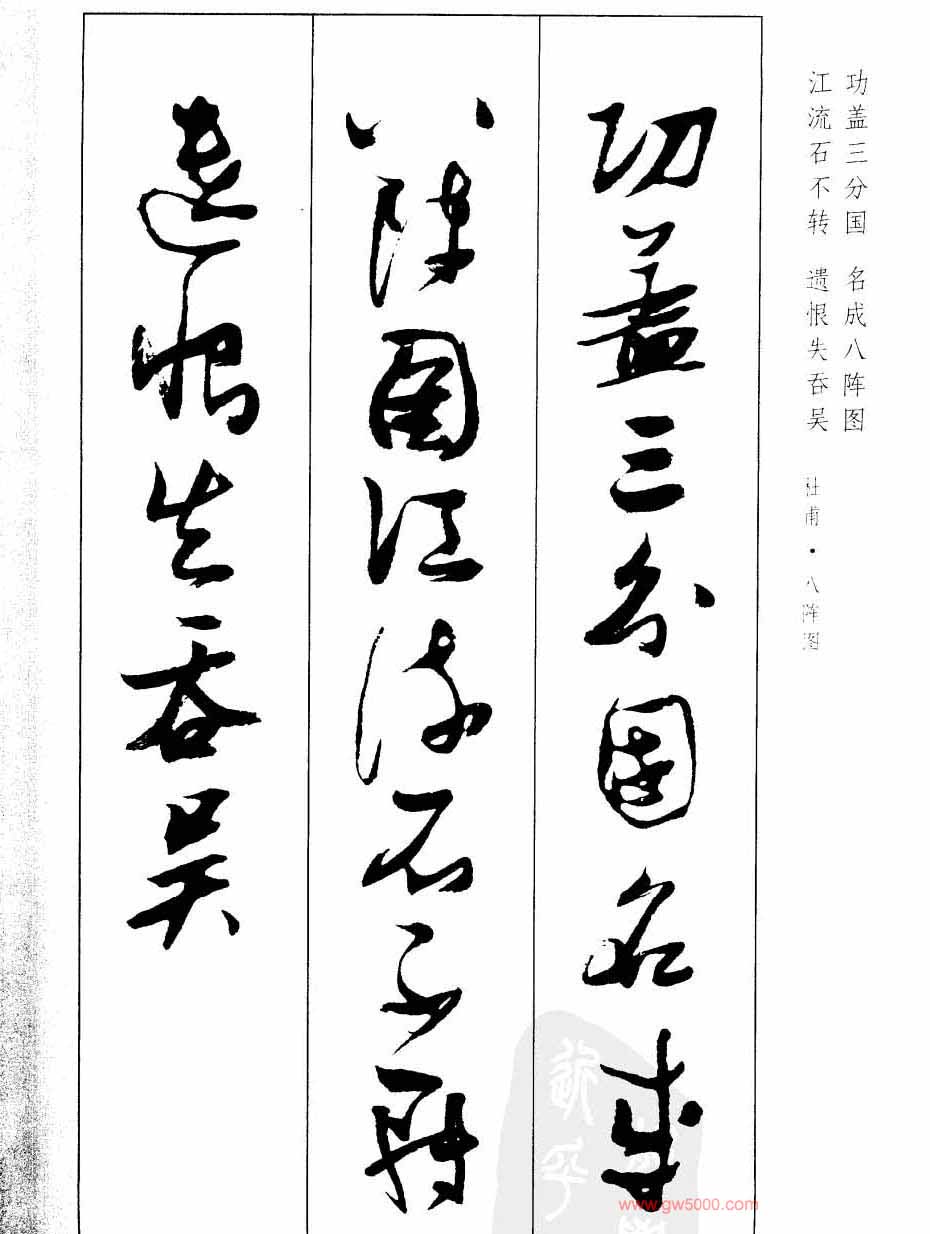 功盖三分国 名成八阵图
江流石不转 遗恨失吞吴
杜甫·八阵图
功蓋三分国名成
八陣圖江流石不轉
遗恨失吞吴
www.gw5000.com